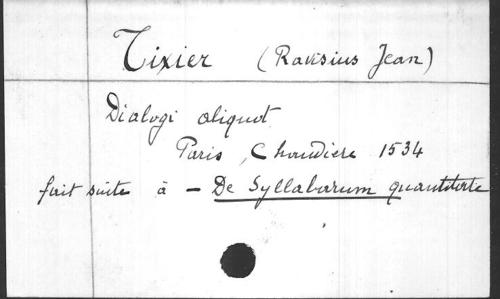 Tixier (Ravisius Jean)
Dialogi aliquot
Paris, Chaudiere 1534
fait suite à - De Syllabarum quantitate